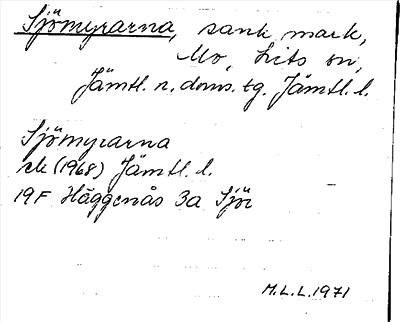 Sjömyrarna, sank mark,
Mo, Lits sn,
Jämtl. n. doms. tg. Jämtl. l.
Sjömyrarna
rk (1968) Jämtl. l.
19F Häggenås 3a Sjör
M.L.L. 1971